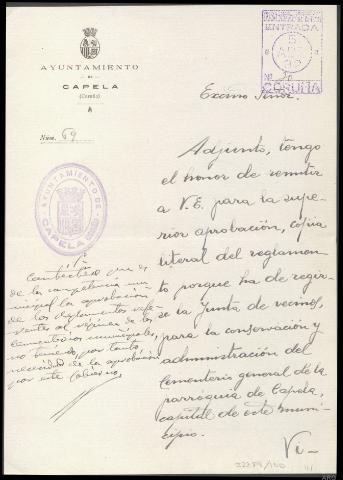 AYUNTAMIENTO
DE
CAPELA
(Coruña)
Núm. 69
ENTRADA
5
32
Nº
CORUÑA
AYUNTAMIENTO DE
CAPELA
Excmo Señor.
Adjunto, tengo
el honor de remitir
a V.E. para la supe-
rior aprobación, copia
literal del reglamen-
to porque ha de regir-
se la Junta de vecinos,
para la conservación y
administración del
Cementerio general de la
parroquia de Capela,
capital de este muni-
cipio.
Vi-
Contéstese que es
de la competencia mu-
nicipal la aprobación
de los reglamentos refe-
rentes al régimen de los
cementerios municipales,
no teniendo, por tanto,
necesidad de la aprobación
por este Gobierno.